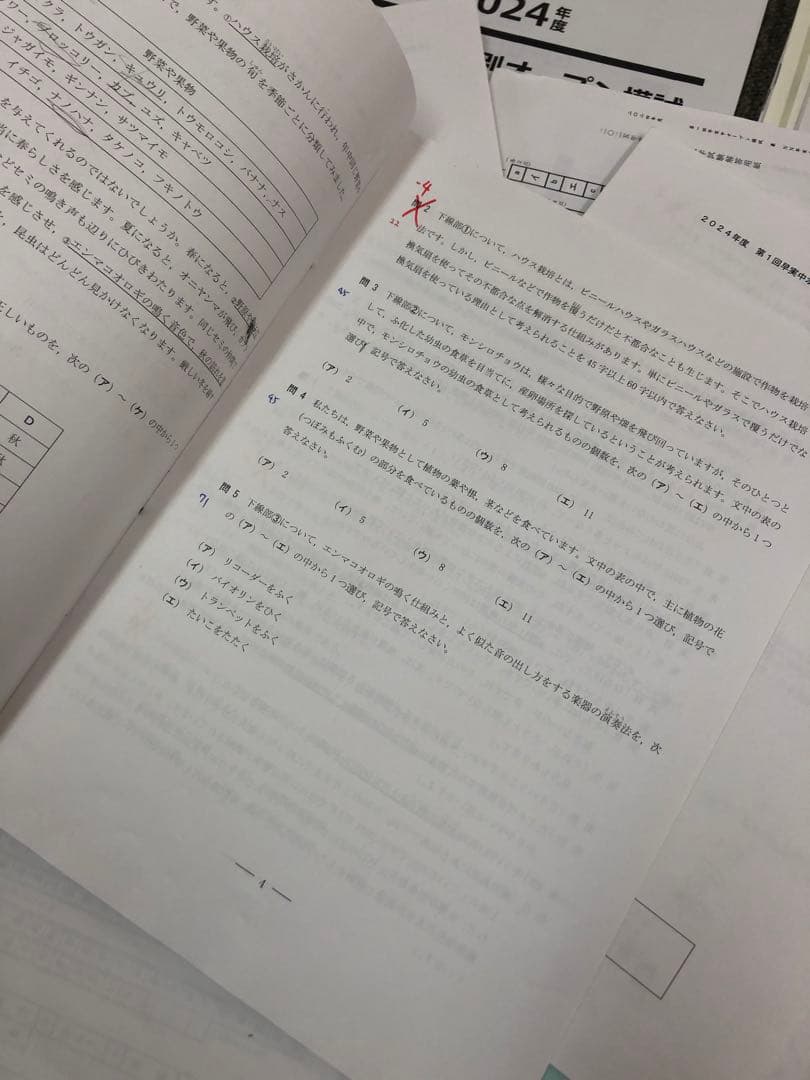 2024年度
す。①ハウス栽培がさかんに行われ、年中
で、野菜や果物の旬を季節ごとに分類してみました
野菜や果物
クラ、トウガン、キュウリ、トウモロコシ、バナナ、ナス
リー、ブロッコリー、カブ、ユズ、キャベツ
ジャガイモ、ギンナン、サツマイモ
イチゴ、ナノハナ、タケノコ、フキノトウ
を与えてくれるのではないでしょうか。春になると、②野原や
当に春らしさを感じます。夏になると、オニヤンマが飛び、
どセミの鳴き声も辺りにひびきわたります。
を感じさせ、③エンマコオロギの鳴く音色で、秋の
昆虫はどんどん見かけなくなります。
正しいものを、次の（ア）～（ケ）の中から1つ
D
秋
2024年度 第1回早実中
-4
22
問2 下線部①について、ハウス栽培とは、ビニールハウスやガラスハウスなどの施設で作物を栽培
法です。しかし、ビニールなどで作物を覆うだけだと不都合なことも生じます。そこでハウス栽培
換気扇を使ってその不都合な点を解消する仕組みがあります。単にビニールやガラスで覆うだけでな
換気扇を使っている理由として考えられることを45字以上60字以内で答えなさい。
45
問3 下線部②について、モンシロチョウは、様々な目的で野原や畑を飛び回っていますが、そのひとつと
して、ふ化した幼虫の食草を目当てに、産卵場所を探しているということが考えられます。文中の表の
中で、モンシロチョウの幼虫の食草として考えられるものの個数を、次の（ア）～（エ）の中から1つ
選び、記号で答えなさい。
（ア） 2 （イ） 5 （ウ） 8 （エ） 11
45
問4 私たちは、野菜や果物として植物の葉や根、茎などを食べています。文中の表の中で、主に植物の花
（つぼみもふくむ）の部分を食べているものの個数を、次の（ア）～（エ）の中から1つ選び、記号で
答えなさい。
（ア） 2 （イ） 5 （ウ） 8 （エ） 11
71
問5 下線部③について、エンマコオロギの鳴く仕組みと、よく似た音の出し方をする楽器の演奏法を、次
の（ア）～（エ）の中から1つ選び、記号で答えなさい。
（ア） リコーダーをふく
（イ） バイオリンをひく
（ウ） トランペットをふく
（エ） たいこをたたく
— 4 —